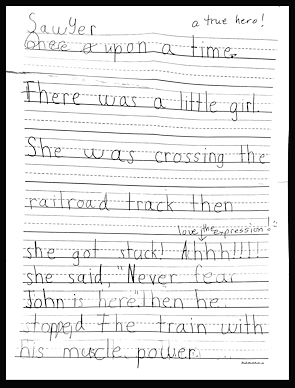 Sawyer
a true hero!
Once a upon a time.
There was a little girl.
She was crossing the
railroad track then
love the expression!
she got stuck! Ahhh!!!!
she said, "Never fear
John is here." then he
stopped The train with
his muscle power.